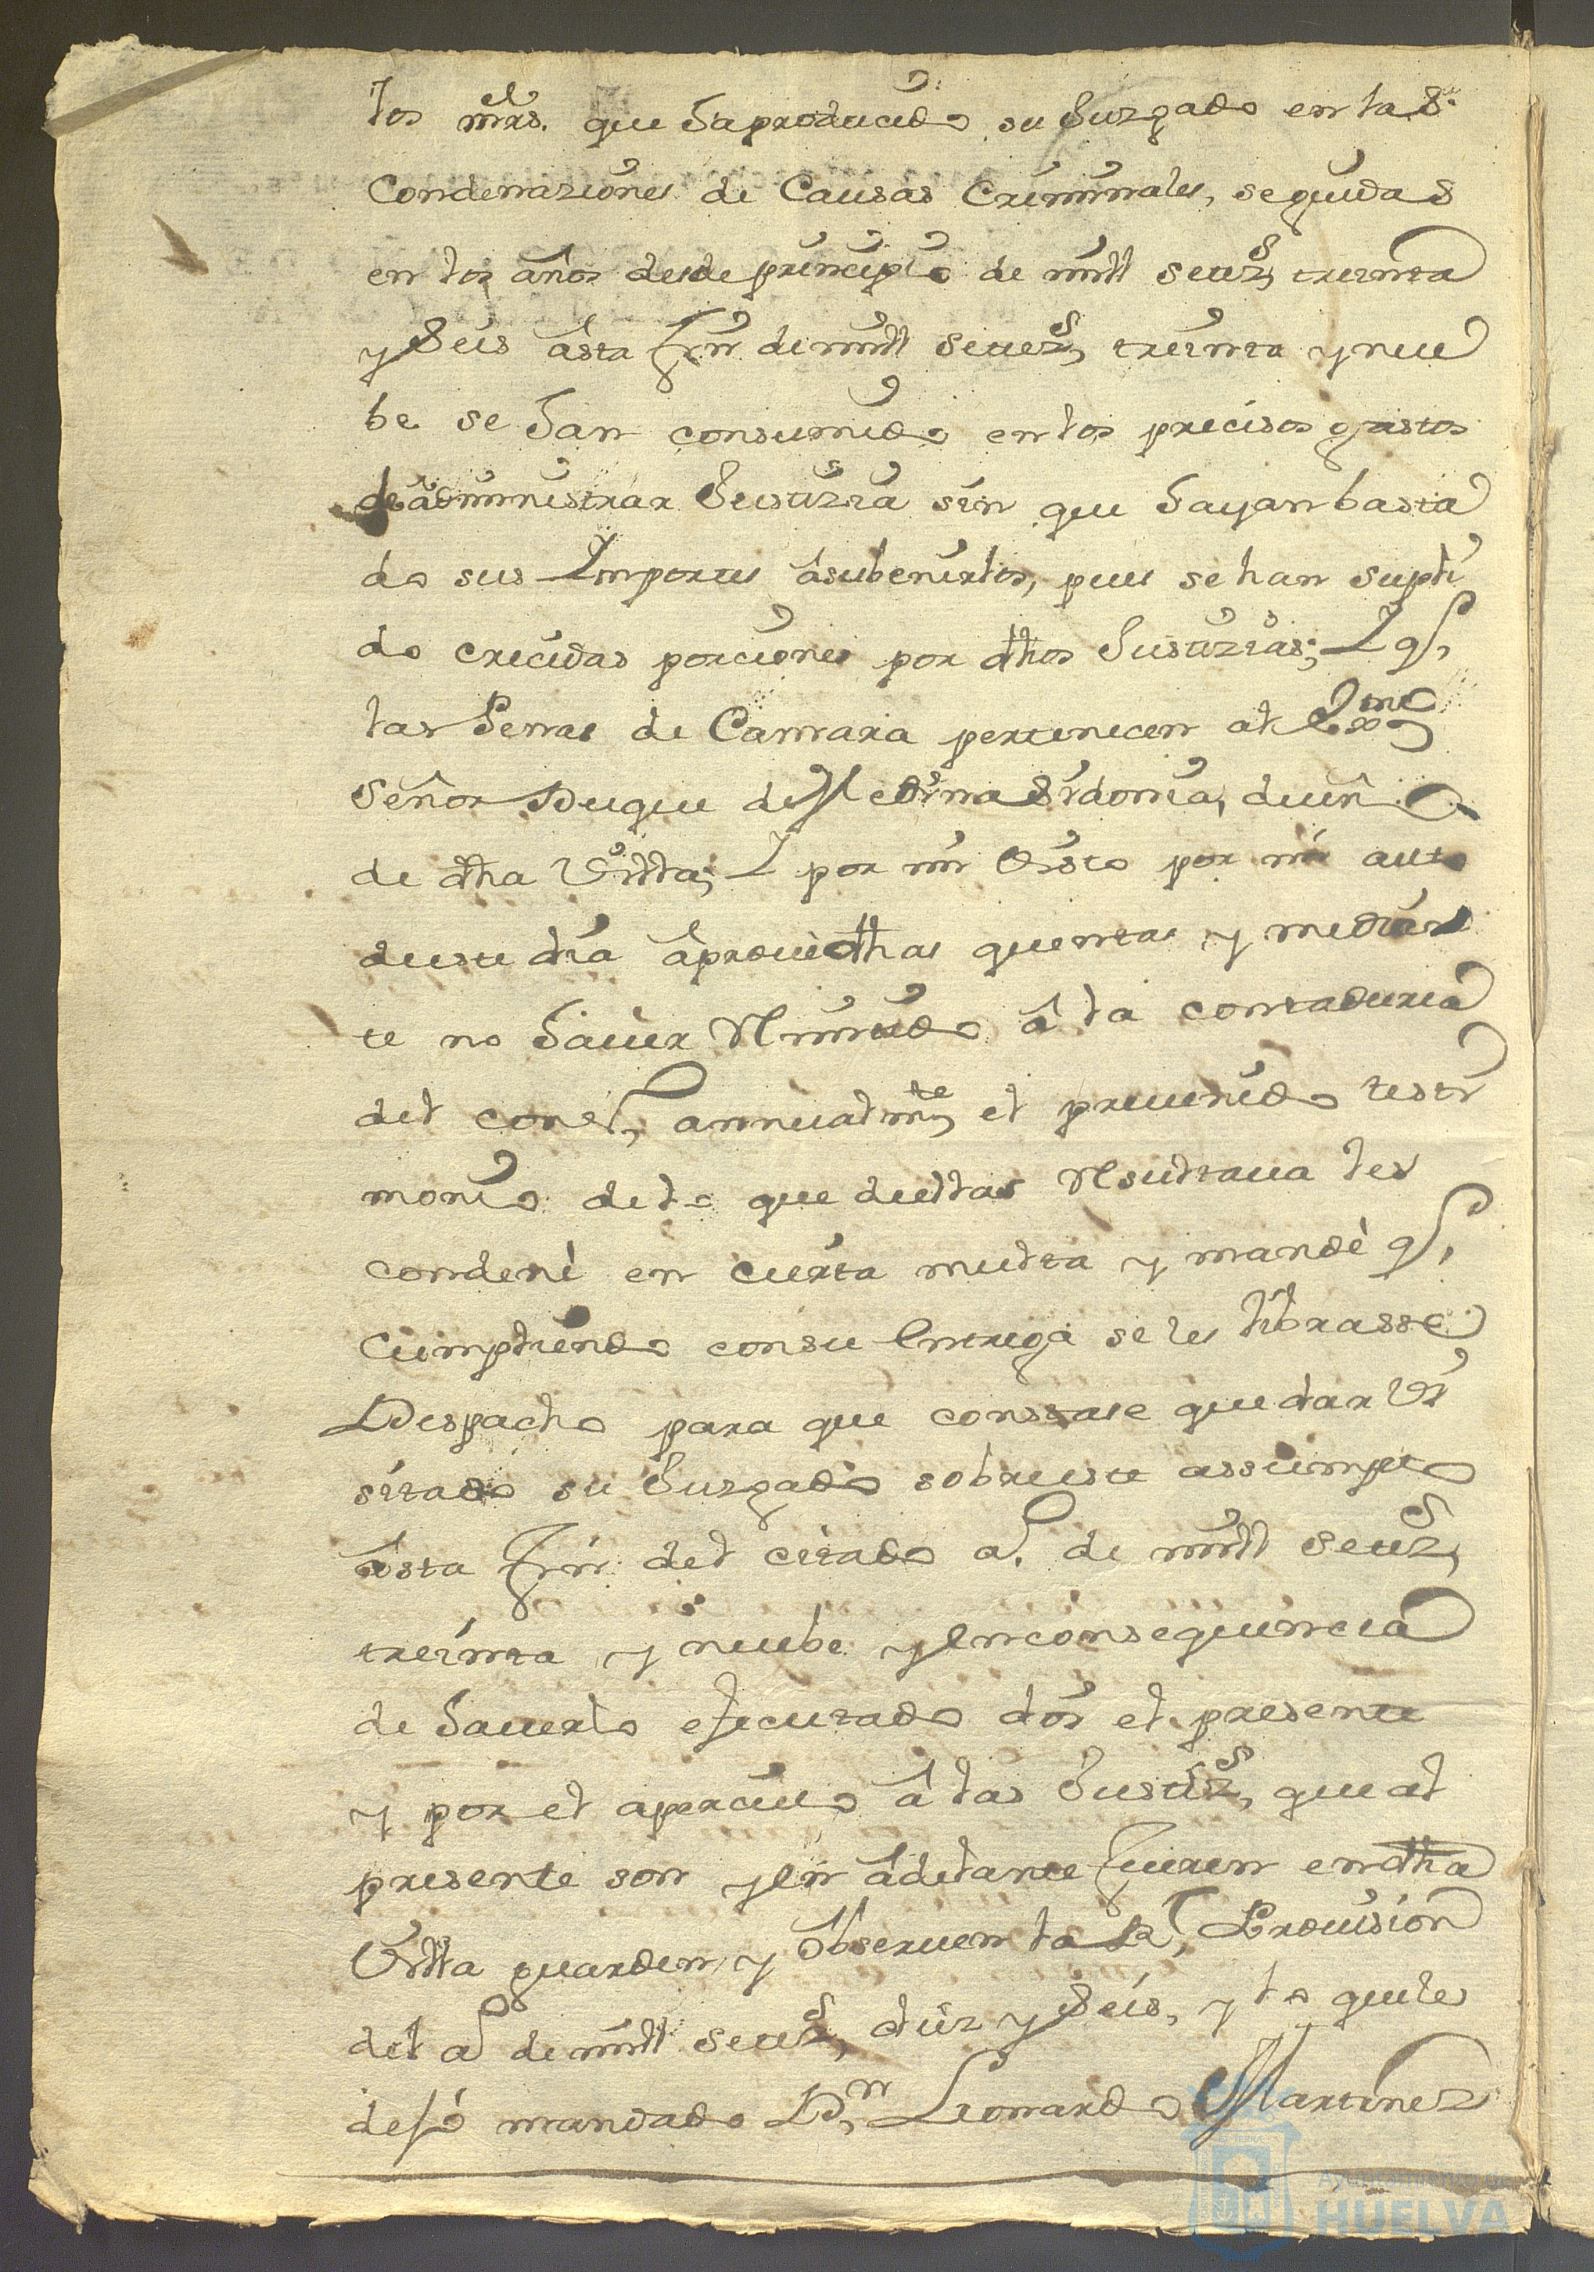 los mrs. que ha producido su Juzgado en las
Condenaziones de Causas Criminales, seguidas
en los años desde principio de mill setezs treinta
y Seis asta fin de mill setezs treinta y nue
be se han consumido en los precisos gastos
de administrar Justizia sin que hayan basta
do sus Importes a subenirlos, pues se han supli
do crecidas porciones por dhos Justizias; Y q
las Penas de Camara pertenecen al Exmo
Señor Duque de Medina Sidonia, dueño
de dha Villa; Y por mi Visto por mi auto
de este dia aprové dhas quentas y median
te no haver Remitido â la contaduria
del conso annualmte el prevenido testi
monio de lo que de ellas Resultava les
condenè en cierta multa y mandè q
Cumpliendo con su Entrega se les librasse
Despacho para que constase quedar Vi
sitado su Juzgado sobre este assumpto
asta fin del citado a. de mill setezs
treinta y nuebe y En consequencia
de haverlo ejecutado doi el presente
y por el apercivo â las Justizs, que al
presente son y En adelante fueren en dha
Villa guarden y observen la Rl Provision
del a de mill setezs diez y Seis, y lo que les
dejó mandado Dn Leonardo Martinez
Ayuntamiento de
HUELVA